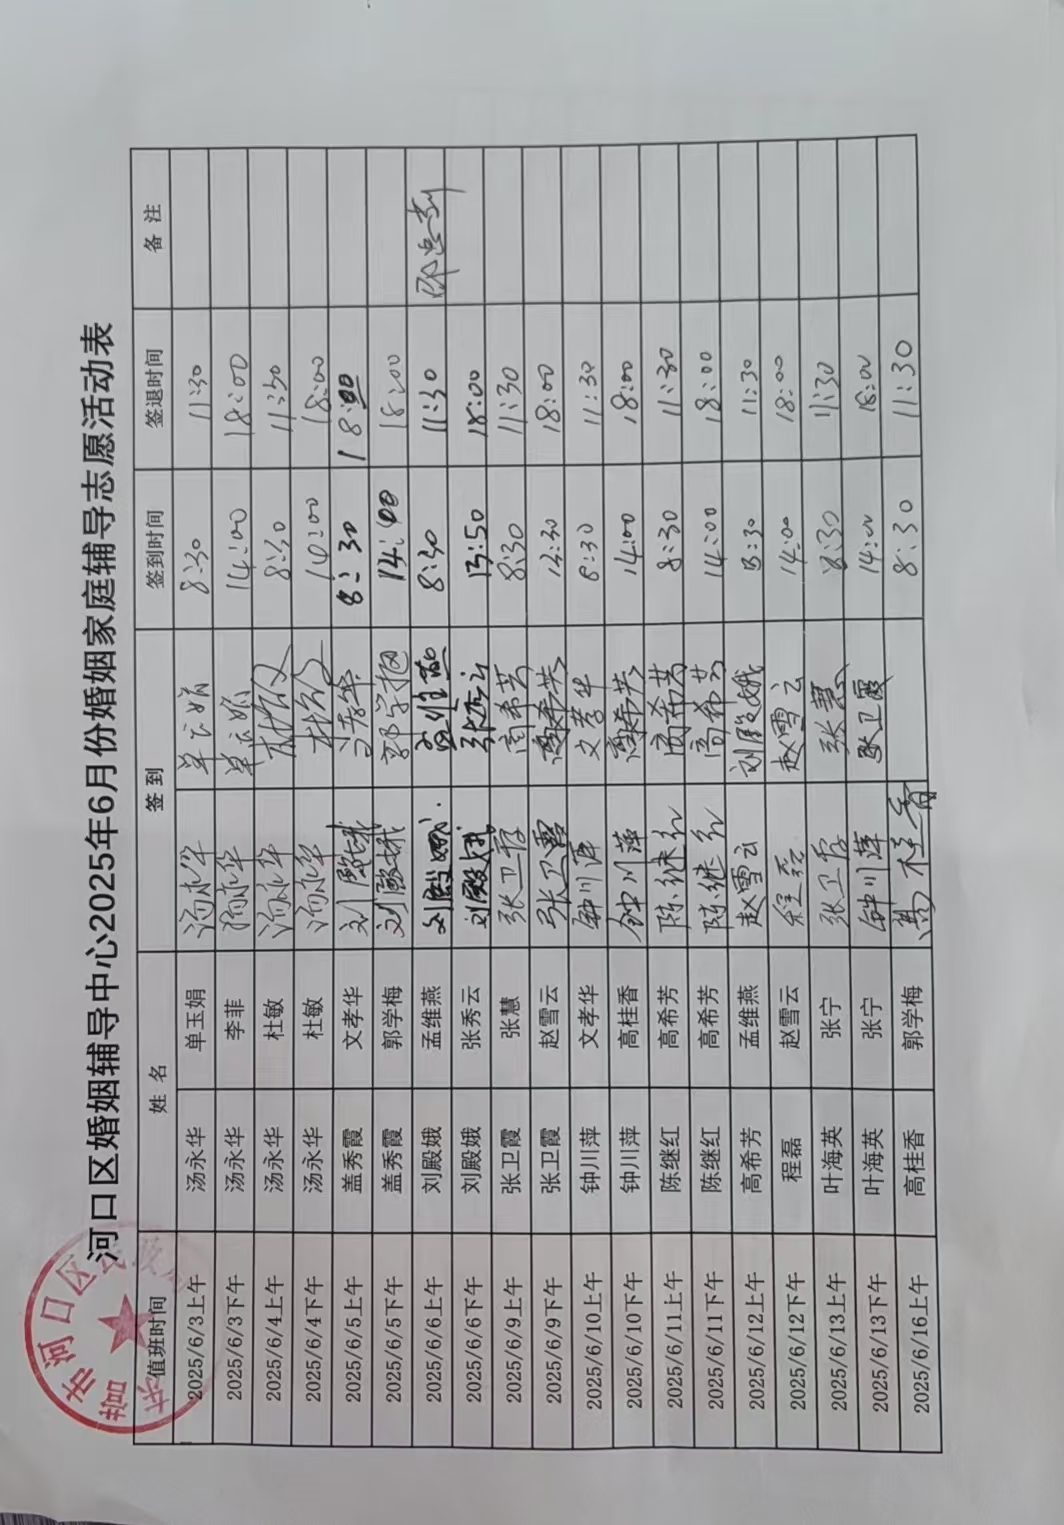 河口区婚姻辅导中心2025年6月份婚姻家庭辅导志愿活动表
值班时间 姓 名 签 到 签到时间 签退时间 备 注
2025/6/3上午 汤永华 单玉娟 汤永华 单玉娟 8:30 11:30
2025/6/3下午 汤永华 李菲 汤永华 单玉娟 14:00 18:00
2025/6/4上午 汤永华 杜敏 汤永华 杜敏 8:30 11:30
2025/6/4下午 汤永华 杜敏 汤永华 杜敏 14:00 18:00
2025/6/5上午 盖秀霞 文孝华 刘殿娥 文孝华 8:30 18:00
2025/6/5下午 盖秀霞 郭学梅 刘殿娥 郭学梅 14:00 18:00
2025/6/6上午 刘殿娥 孟维燕 刘殿娥 孟维燕 8:30 11:30
2025/6/6下午 刘殿娥 张秀云 刘殿娥 张秀云 13:50 18:00
2025/6/9上午 张卫霞 张慧 张卫霞 高希芳 8:30 11:30
2025/6/9下午 张卫霞 赵雪云 张卫霞 高希芳 13:30 18:00
2025/6/10上午 钟川萍 文孝华 钟川萍 文孝华 8:30 11:30
2025/6/10下午 钟川萍 高桂香 钟川萍 高希芳 14:00 18:00
2025/6/11上午 陈继红 高希芳 陈继红 高希芳 8:30 11:30
2025/6/11下午 陈继红 高希芳 陈继红 高希芳 14:00 18:00
2025/6/12上午 高希芳 孟维燕 赵雪云 刘殿娥 8:30 11:30
2025/6/12下午 程磊 赵雪云 程磊 赵雪云 14:00 18:00
2025/6/13上午 叶海英 张宁 张卫霞 张慧 8:30 11:30
2025/6/13下午 叶海英 张宁 钟川萍 张卫霞 14:00 18:00
2025/6/16上午 高桂香 郭学梅 高桂香 8:30 11:30
东营市河口区民政局